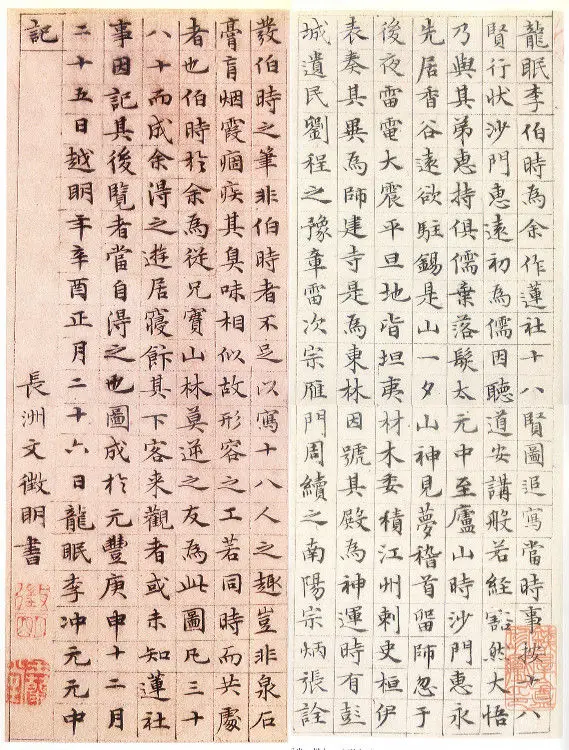 龍眠李伯時為余作蓮社十八賢圖追寫當時事按十八
賢行狀沙門惠遠初為儒因聽道安講般若經豁然大悟
乃與其弟惠持俱儒棄落髮太元中至廬山時沙門惠永
先居香谷遠欲駐錫是山一夕山神見夢稽首留師忽于
後夜雷電大震平旦地皆坦夷材木委積江州刺史桓伊
表奏其異為師建寺是為東林因號其殿為神運時有彭
城遺民劉程之豫章雷次宗雁門周續之南陽宗炳張詮
發伯時之筆非伯時者不足以寫十八人之趣豈非泉石
膏肓烟霞痼疾其臭味相似故形容之工若同時而共處
者也伯時於余為從兄實山林莫逆之友為此圖凡三十
八十而成余得之遊居寢飰其下客來觀者或未知蓮社
事因記其後覽者當自得之也圖成於元豐庚申十二月
二十五日越明年辛酉正月二十六日龍眠李冲元元中
記
長洲文徵明書
徵明